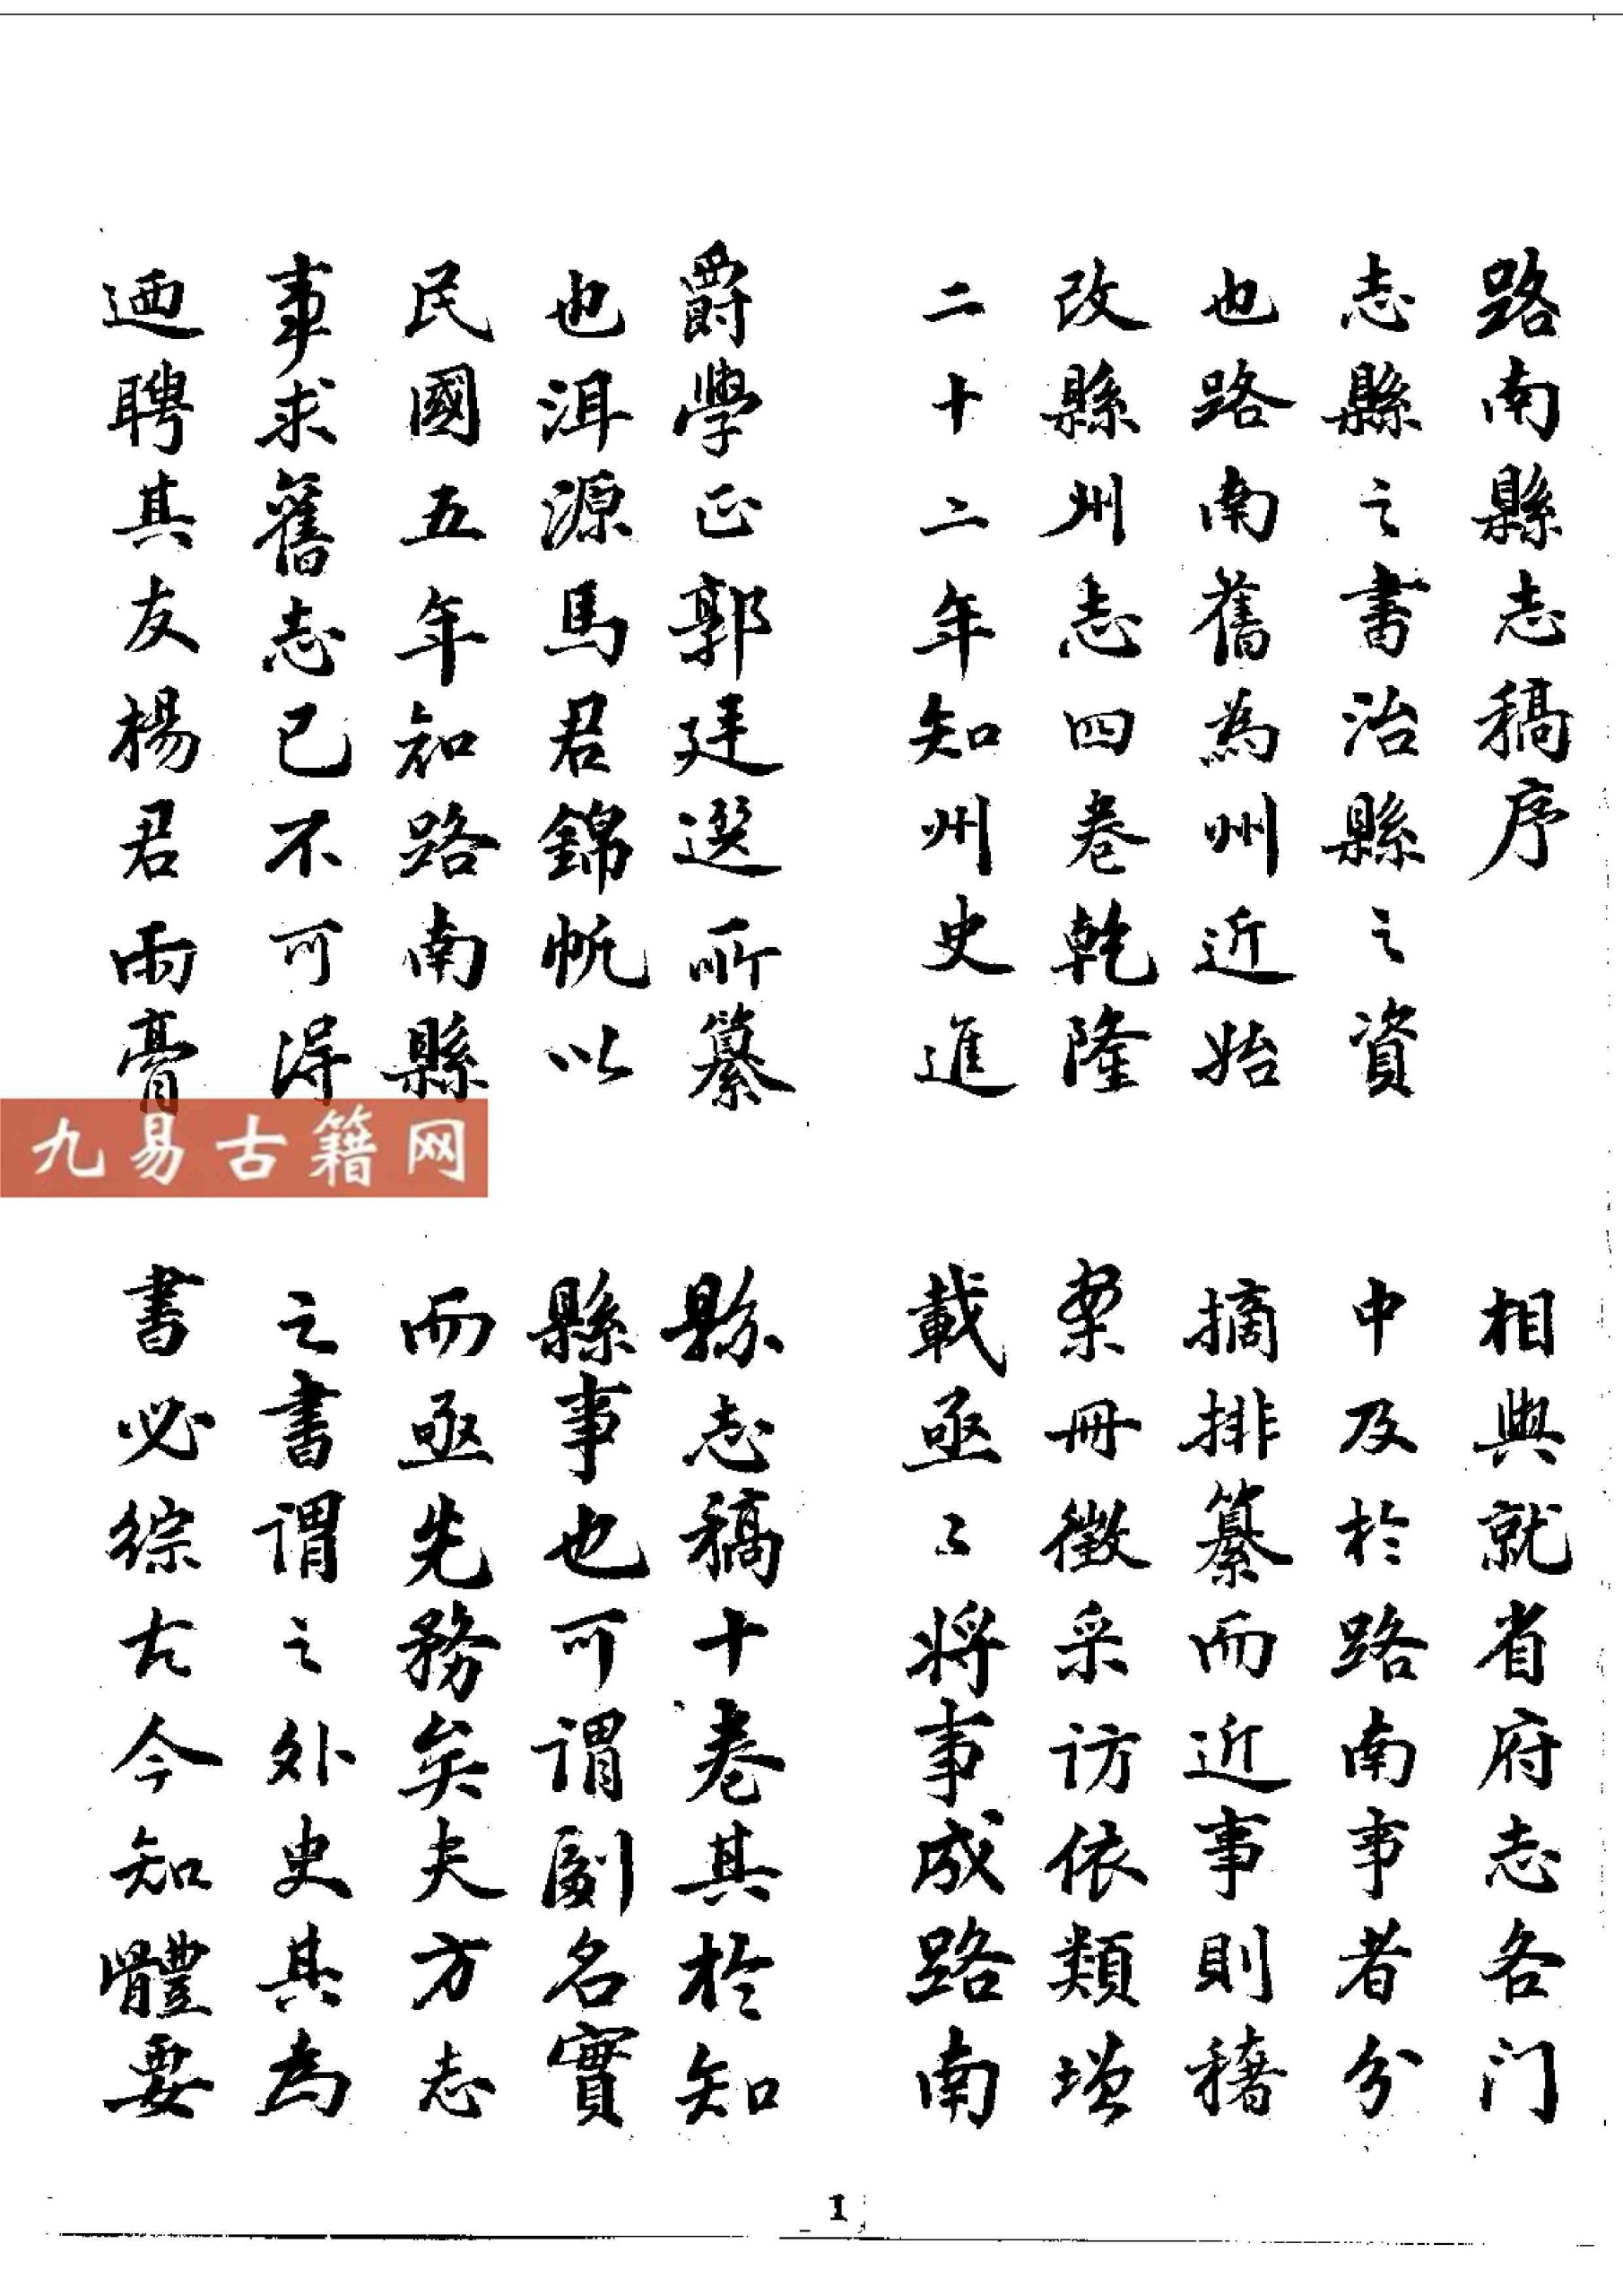 路南縣志稿序
志縣之書治縣之資
也路南舊為州近始
改縣州志四卷乾隆
二十二年知州史進
爵學正郭廷選所纂
也洱源馬君錦帆以
民國五年知路南縣
事求舊志已不可得
迺聘其友楊君雨膏
九易古籍网
相與就省府志各门
中及於路南事者分
摘排纂而近事則藉
案冊徵采访依類增
載亟〻将事成路南
縣志稿十卷其於知
縣事也可谓副名實
而亟先務矣夫方志
之書谓之外史其為
書必綜古今知體要
1